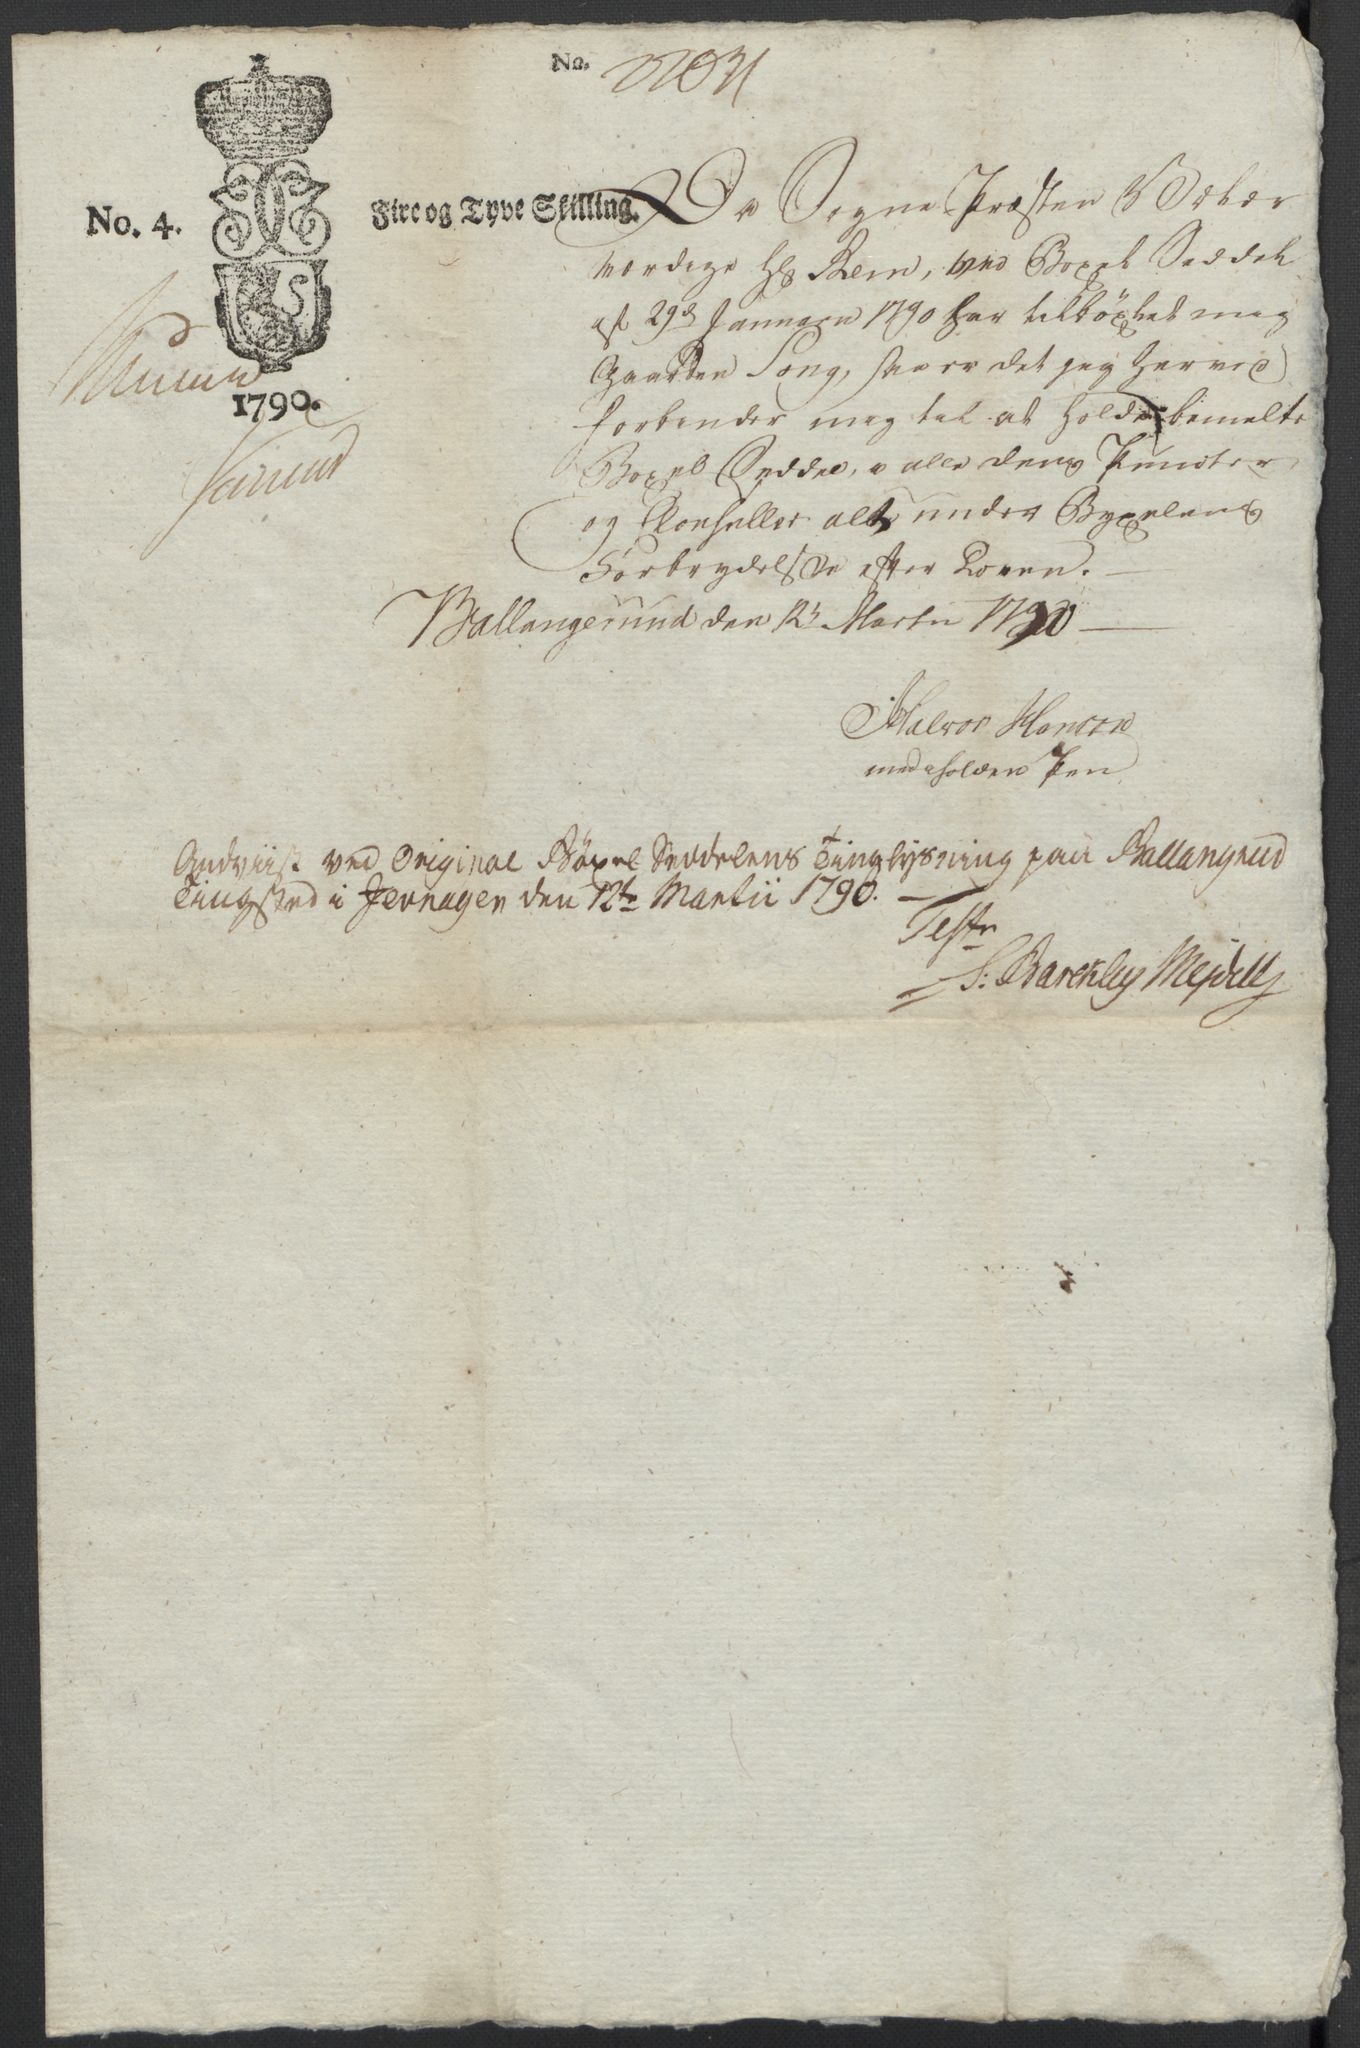 No.
No. 4.
Fire og Tyve Skilling.
1790.
Da Sogne Præsten Velær
værdige Hr Rein, ved Böxel Seddel
af 29de Januarii 1790 har tilböxlet mig
Gaarden Song, saa er det jeg herved
forbinder mig til at holde bemelte
Böxel Seddel, i alle dens Puncter
og Clousuller alt under Byxelens
Forbrydelse efter Loven.
Ballangerud den 12te Martii 1790
Halvor Hansen
med iholden Pen
Andviist ved Original Böxel Seddelens Tinglysning paa Ballangrud
Tingsted i Jevnager den 12te Martii 1790.
Test:
S: Barchley Mejdell